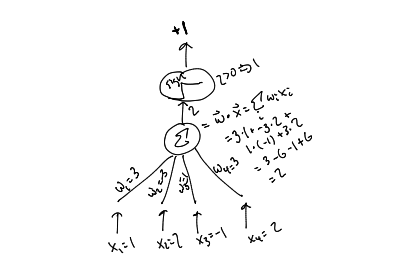 +1
sgn
2>0 ⇒ 1
2
Σ
= w⃗ • x⃗ = Σ wᵢxᵢ
= 3·1 + -3·2 +
1·(-1) + 3·2
= 3-6-1+6
= 2
w₁=3
w₄=3
x₁=1
x₂=2
x₃=-1
x₄=2